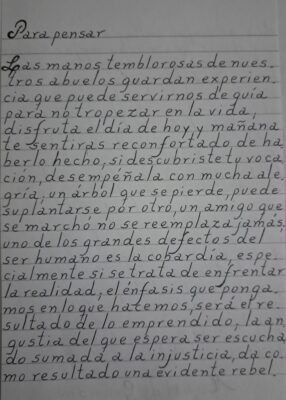 Para pensar
Las manos temblorosas de nues-
tros abuelos guardan experien-
cia que puede servirnos de guía
para no tropezar en la vida,
disfruta el día de hoy y mañana
te sentiras reconfortado de ha-
berlo hecho, si descubriste tu voca-
ción, desempéñala con mucha ale-
gría, un árbol que se pierde, puede
suplantarse por otro, un amigo que
se marchó no se reemplaza jamás,
uno de los grandes defectos del
ser humano es la cobardía, espe-
cialmente si se trata de enfrentar
la realidad, el énfasis que ponga-
mos en lo que hatemos, será el re-
sultado de lo emprendido, la an-
gustia del que espera ser escucha-
do sumada a la injusticia, da co-
mo resultado una evidente rebel-